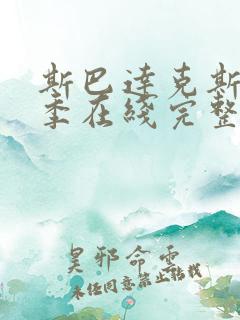 斯巴达克斯
季在线完整
昊邪命灵
未经同意禁止转载